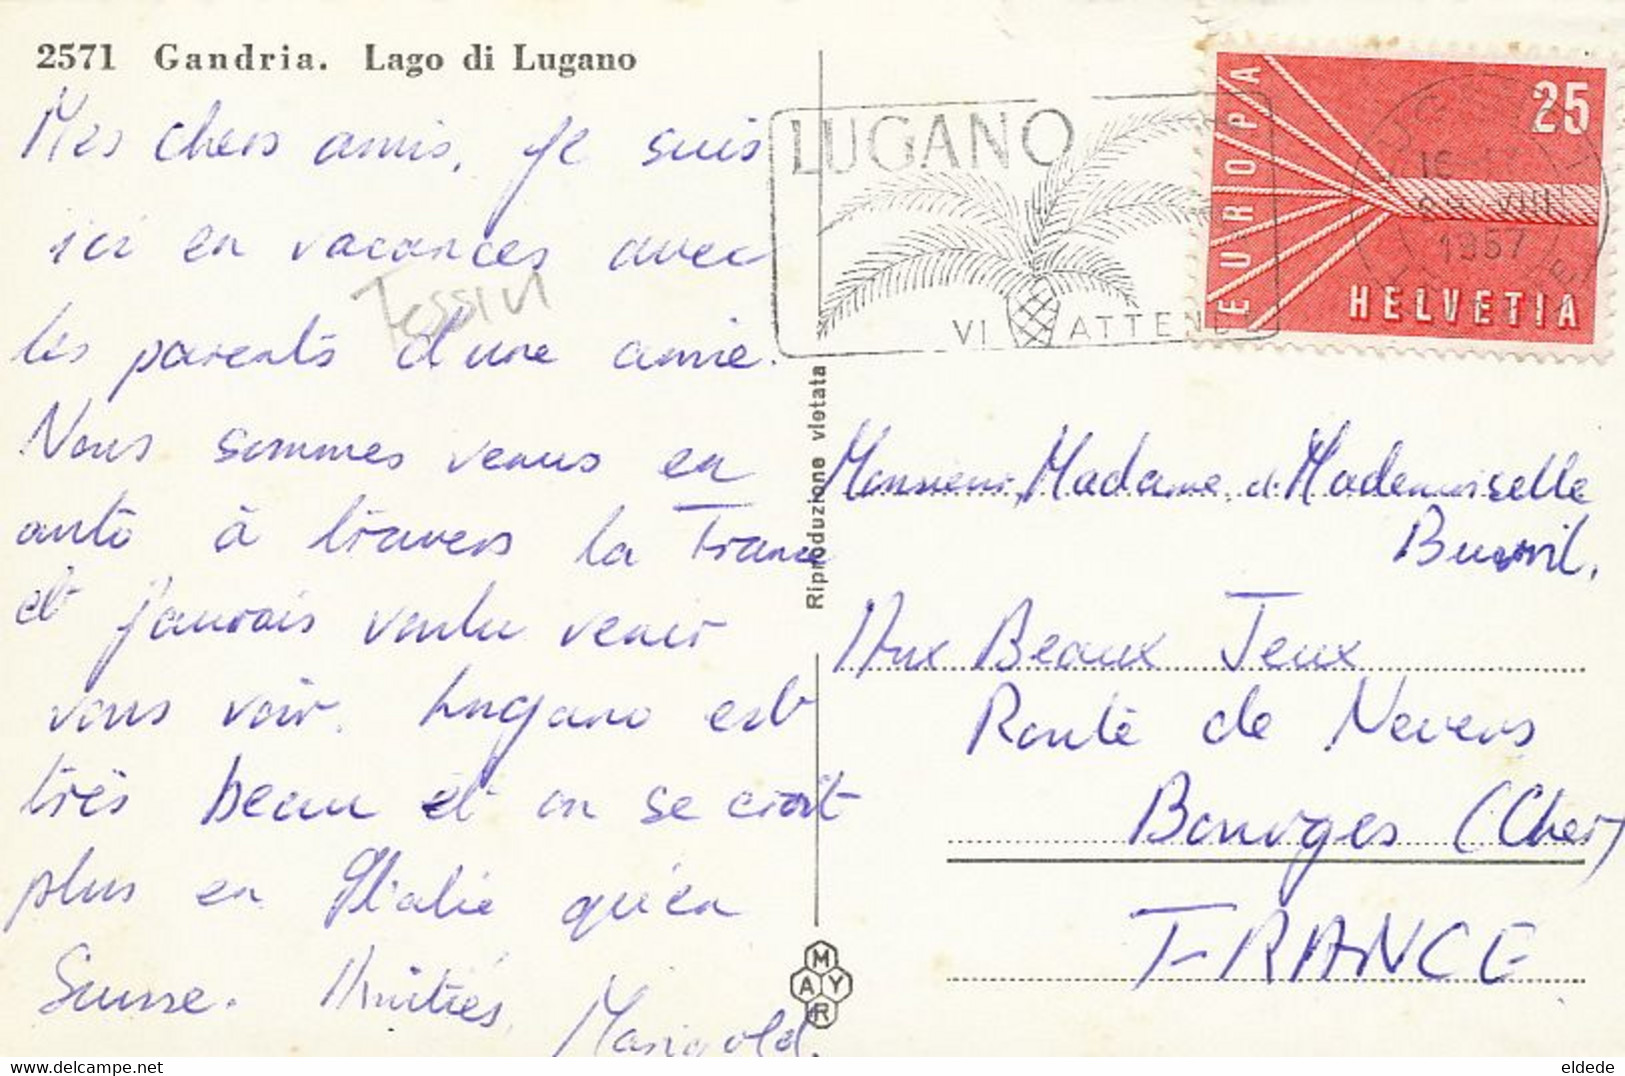 2571 Gandria. Lago di Lugano
Mes chers amis, je suis
ici en vacances avec
les parents d'une amie.
Nous sommes venus en
auto à travers la France
et j'aurais voulu venir
vous voir. Lugano est
très beau et on se croit
plus en Italie qu'en
Suisse. Amitiés,
Marigold.
Tessin
Riproduzione vietata
MAYR
LUGANO
VI ATTEND
EUROPA
25
HELVETIA
VIII
1957
Monsieur, Madame, et Mademoiselle
Aux Beaux Jeux
Route de Nevers
Bourges (Cher)
FRANCE
eldede